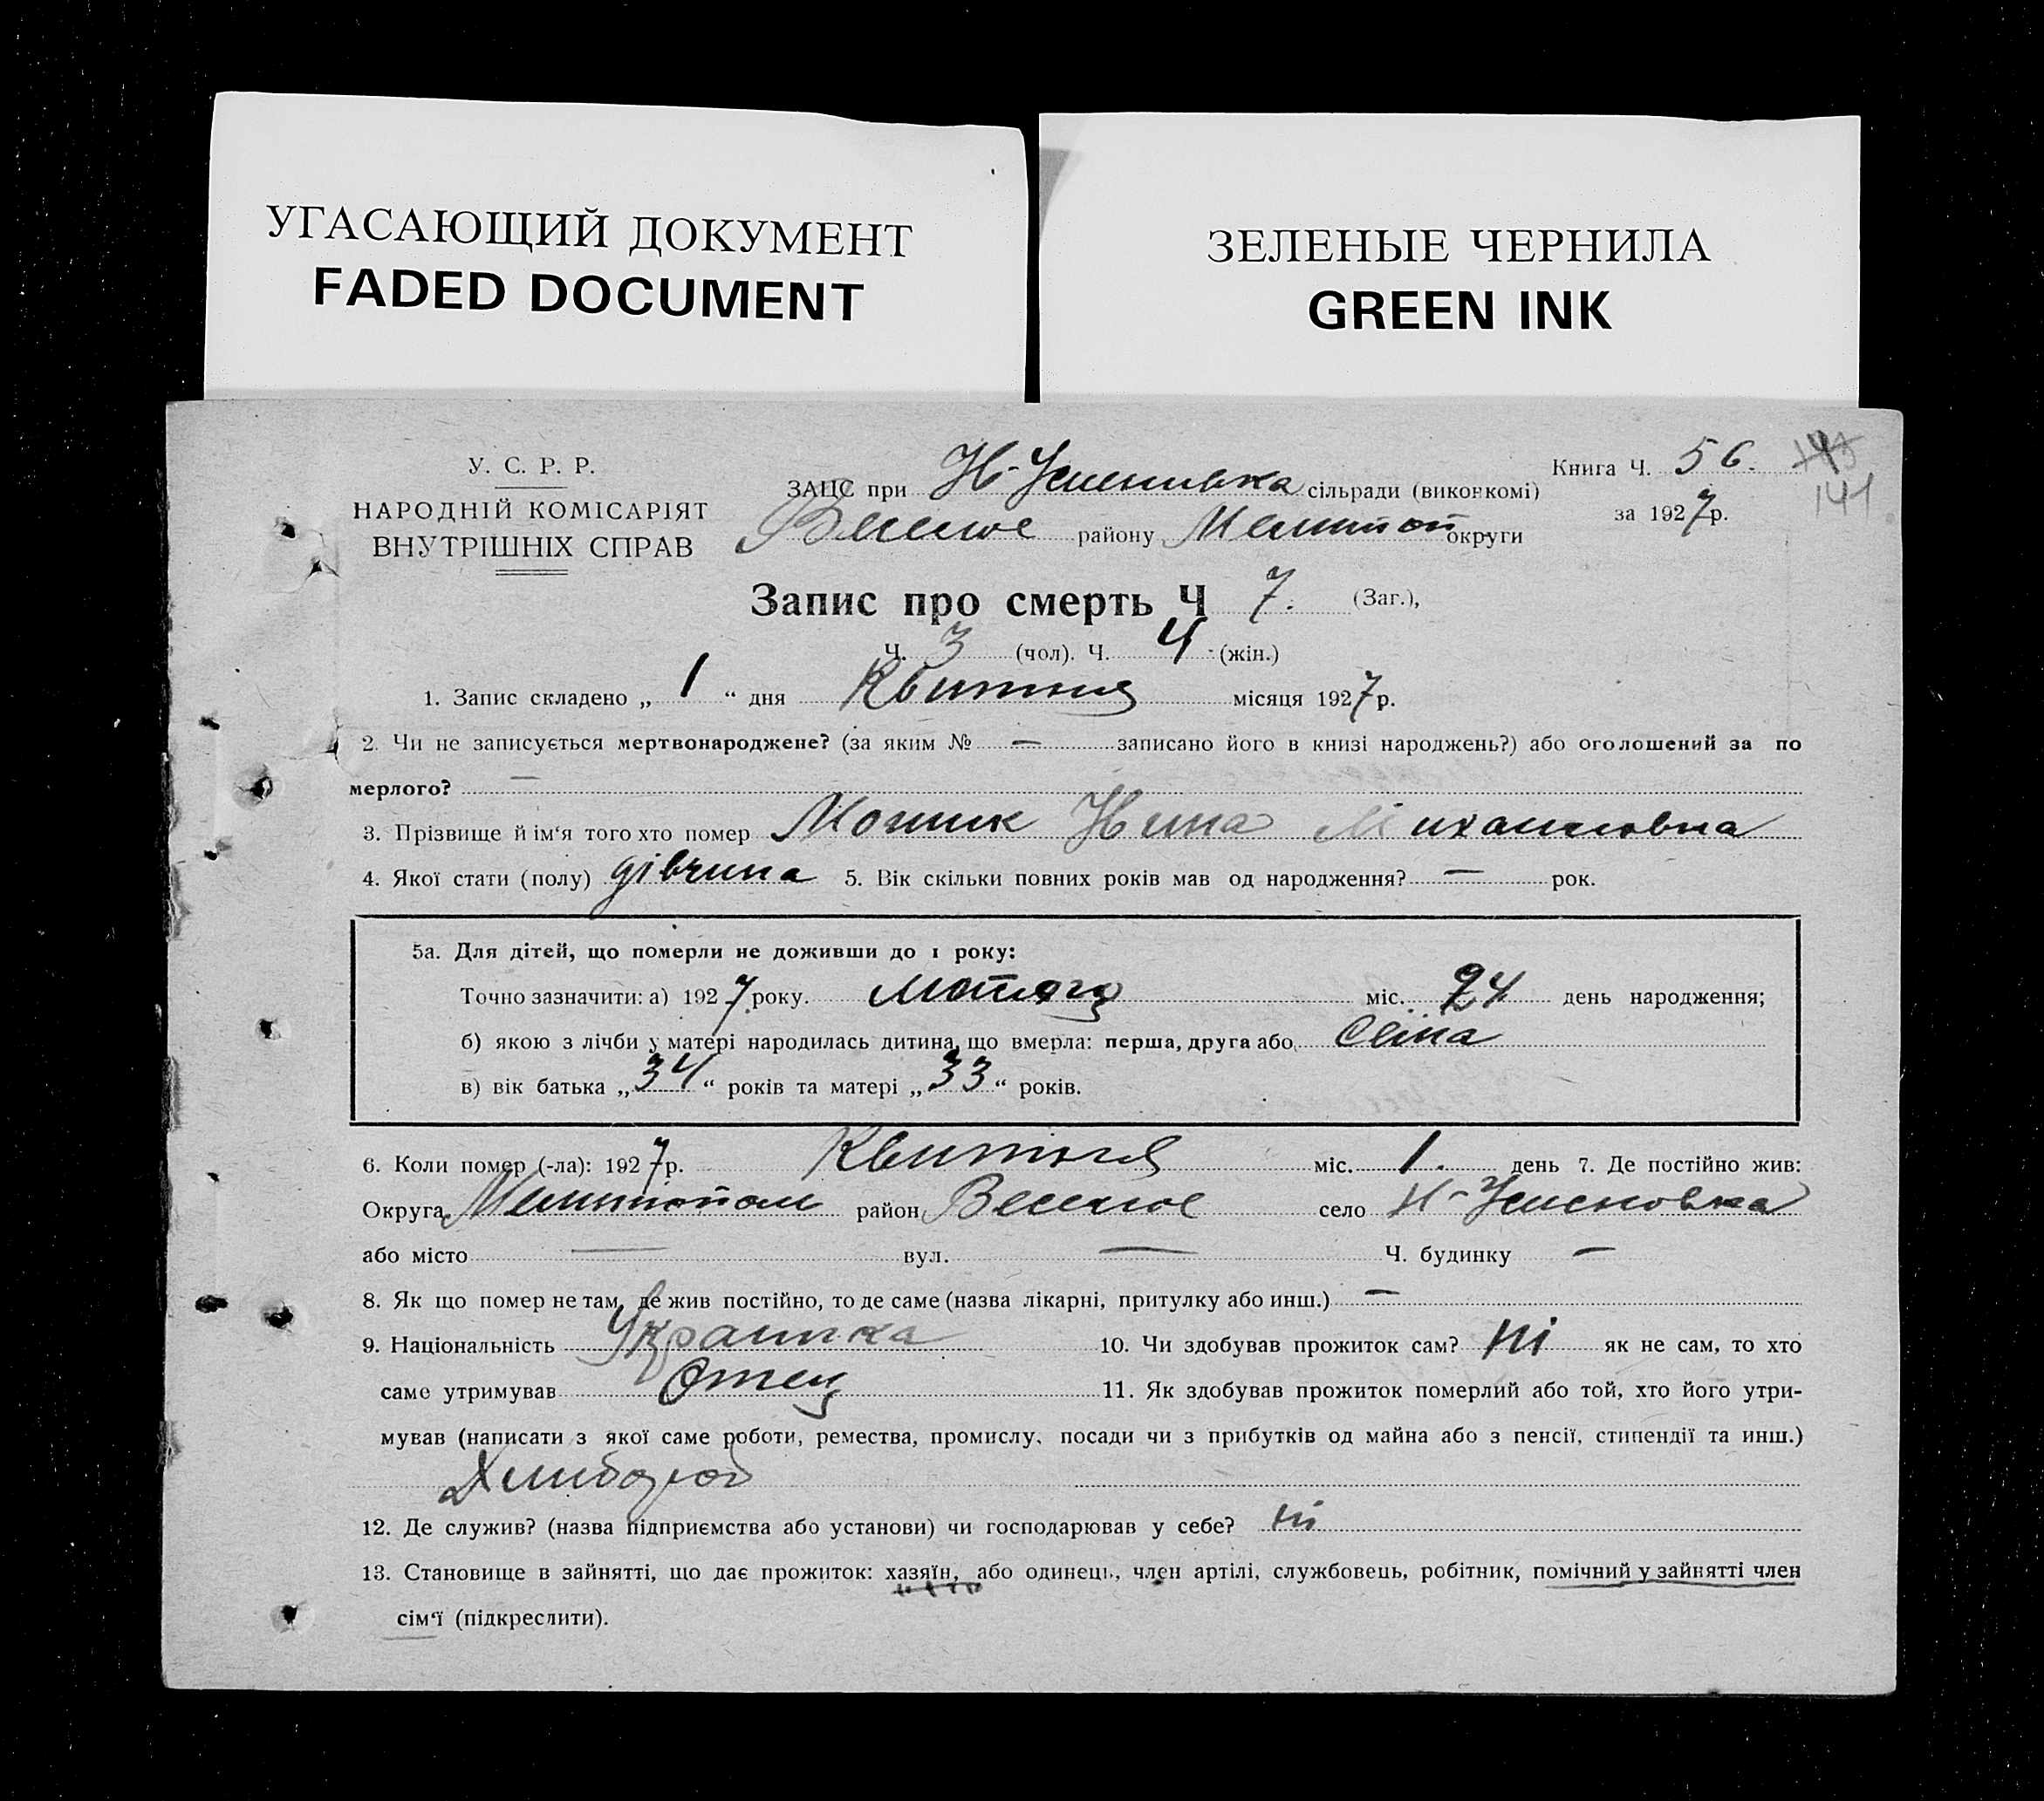 УГАСАЮЩИЙ ДОКУМЕНТ
FADED DOCUMENT
ЗЕЛЕНЫЕ ЧЕРНИЛА
GREEN INK
У. С. Р. Р.
НАРОДНІЙ КОМІСАРІЯТ
ВНУТРІШНІХ СПРАВ
Книга Ч. 56.
141
за 1927 р.
ЗАЦС при Н-Успенивка сільради (виконкомі)
Веселое району Мелитоп округи
Запис про смерть Ч 7. (Заг.),
Ч. 3 (чол). Ч. 4 (жін.)
1. Запис складено „ 1 “ дня Квитня місяця 1927 р.
2. Чи не записується мертвонароджене? (за яким № — записано його в книзі народжень?) або оголошений за по
мерлого? —
3. Прізвище й ім‘я того хто помер Нина Михайловна
4. Якої стати (полу) дівчина 5. Вік скільки повних років мав од народження? — рок.
5а. Для дітей, що померли не доживши до 1 року:
Точно зазначити: а) 1927 року. Лютого міс. 24 день народження;
б) якою з лічби у матері народилась дитина, що вмерла: перша, друга або
в) вік батька „ 34 “ років та матері „ 33 “ років.
6. Коли помер (-ла): 1927 р. Квитня міс. 1. день 7. Де постійно жив:
Округа Мелитополь район Веселое село Н-Успеновка
або місто — вул. — Ч. будинку —
8. Як що помер не там, де жив постійно, то де саме (назва лікарні, притулку або инш.) —
9. Національність Украинка 10. Чи здобував прожиток сам? ні як не сам, то хто
саме утримував Отец 11. Як здобував прожиток померлий або той, хто його утри-
мував (написати з якої саме роботи, ремества, промислу, посади чи з прибутків од майна або з пенсії, стипендії та инш.)
Хлибороб
12. Де служив? (назва підприємства або установи) чи господарював у себе? ні
13. Становище в зайнятті, що дає прожиток: хазяїн, або одинець, член артілі, службовець, робітник, помічний у зайнятті член
сім‘ї (підкреслити).